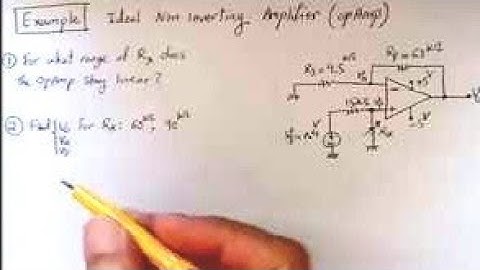 Example Ideal Non Inverting Amplifier (opAmp)
① For what range of Rx does
the opAmp stay linear?
② Find Vo for Rx: 60kΩ,
Rs = 4.5kΩ
Rf = 63kΩ
15kΩ
Rx
5V
-5V